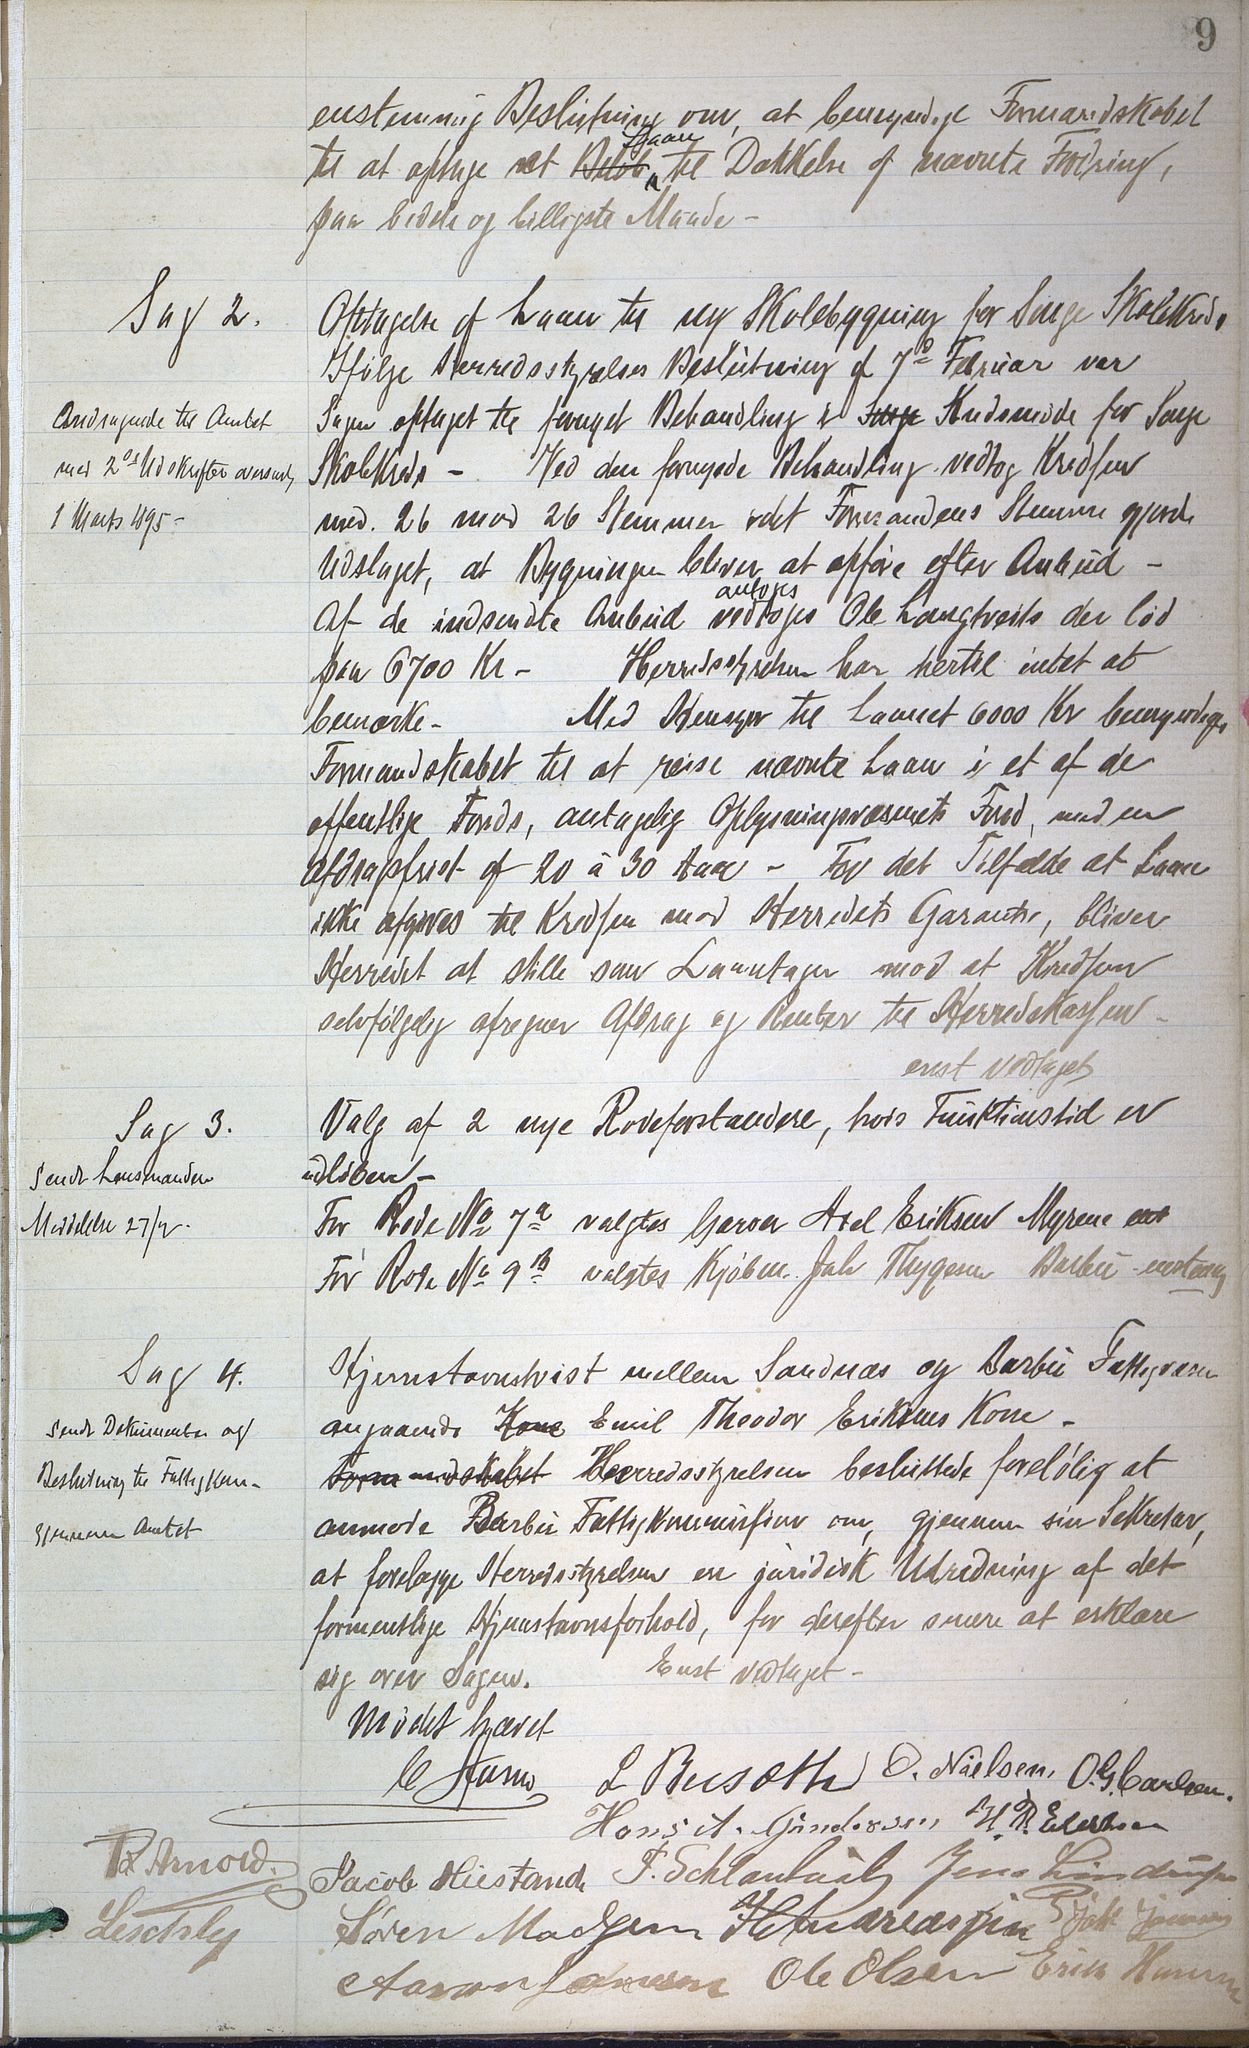 9
enstemmig Beslutning om, at bemyndige Formandskabet
til at optage et Beløb Laan til Dækkelse af nævnte Fordring,
paa bedste og billigste Maade -
Sag 2.
Optagelse af Laan til ny Skolebygning for Songe Skolekreds.
Ifølge Herredsstyrelsens Beslutning af 7de Februar var
Sagen optaget til fornyet Behandling i Songe Kredsmøde for Songe
Skolekreds - Ved den fornyede Behandling vedtog Kredsen
med 26 mod 26 Stemmer idet Formandens Stemme gjorde
Udslaget, at Bygningen bliver at opføre efter Anbud -
Af de indsendte Anbud vedtoges antoges Ole Langtveits der lød
paa 6700 Kr - Herredsstyrelsen har hertil intet at
bemærke - Med Hensyn til Laanet 6000 Kr bemyndiges
Formandskabet til at reise nævnte Laan i et af de
offentlige Fonds, antagelig Oplysningsvæsenets Fond, med en
Afdragsfrist af 20 à 30 Aar - For det Tilfælde at Laan
ikke afgives til Kredsen mod Herredets Garanti, bliver
Herredet at stille som Laantager mod at Kredsen
selvfølgelig afregner Afdrag og Renter til Herredskassen -
enst vedtaget
Andragende til Amtet
med 2de Udskrifter oversendt
1 Marts 1895 -
Sag 3.
Valg af 2 nye Rodeforstandere, hvis Funktionstid er
udløben -
For Rode No 7a valgtes Garver Axel Eriksen Myrene enst
For Rode No 9B valgtes Kjøbm. Joh Thygesen Barbu - enstemmig
Sendt Lensmanden
Meddelelse 27/2 -
Sag 4.
Hjemstavnstvist mellem Sandnæs og Barbu Fattigvæsen
angaaende Kone Emil Theodor Eriksens Kone -
Formandskabet Herredsstyrelsen besluttede foreløbig at
anmode Barbu Fattigkommission om, gjennem sin Sekretær,
at forelægge Herredsstyrelsen en juridisk Udredning af det
formentlige Hjemstavnsforhold, for derefter senere at erklære
sig over Sagen. Enst vedtaget -
Sendt Dokumenter og
Beslutning til Fattigkom-
gjennem Amtet
Mødet hævet
L Busoth O. Nielsen, O.G. Carlsen.
Hans A. Gundersen
R. Arnold. Jacob Hiestand F. Schlanbusch Jens
Søren Madsen H Andreassen
Aanon Jensen Ole Olsen Erik Hansen